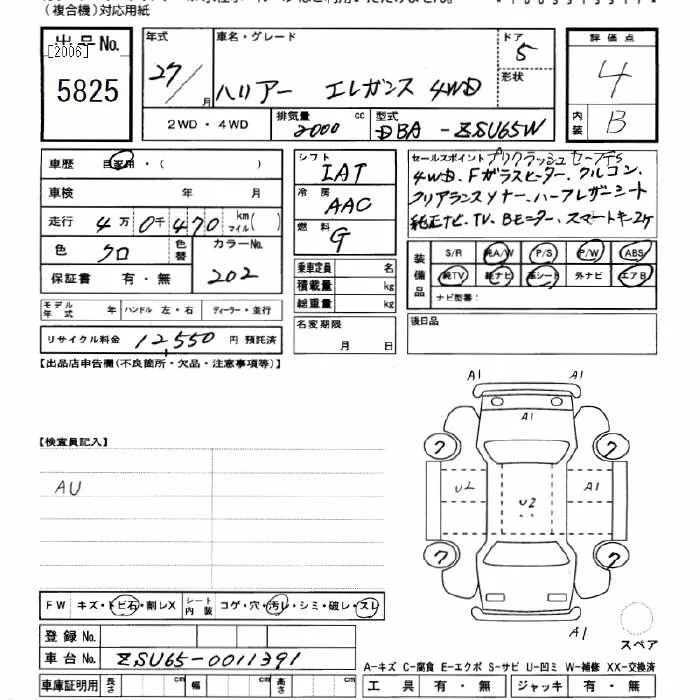 (複合機)対応用紙
出品No.
[2006]
5825
年式
27/月
車名・グレード
ハリアー エレガンス 4WD
ドア
5
形状
2WD・4WD
排気量
2000 cc
型式
DBA-ZSU65W
評価点
4
内装
B
車歴 自家用・( )
車検 年 月
走行 4万0千470 km マイル( )
色 クロ
色替
カラーNo.
202
保証書 有・無
モデル年式 年 ハンドル 左・右 ディーラー・並行
リサイクル料金 12,550 円 預託済
シフト
IAT
冷房
AAC
燃料
G
乗車定員 名
積載量 kg
総重量 kg
名変期限
月 日
セールスポイント プリクラッシュセーフティS
4WD、Fガラスヒーター、クルコン、
クリアランスソナー、ハーフレザーシート
純正ナビ、TV、Bモニター、スマートキー2ケ
装備品
S/R 純A/W P/S P/W ABS
純TV 純ナビ 革シート 外ナビ エアB
ナビ型番:
後日品
【出品店申告欄(不良箇所・欠品・注意事項等)】
【検査員記入】
AU
A1
A1
A1
7
7
U2
U2
A1
7
7
A1
スペア
FW キズ・トビ石・割レX シート内装 コゲ・穴・汚レ・シミ・破レ・スレ
登録No.
車台No. ZSU65-0011391
車庫証明用 長さ cm 幅 cm 高さ cm
A-キズ C-腐食 E-エクボ S-サビ U-凹ミ W-補修 XX-交換済
工具 有・無 ジャッキ 有・無